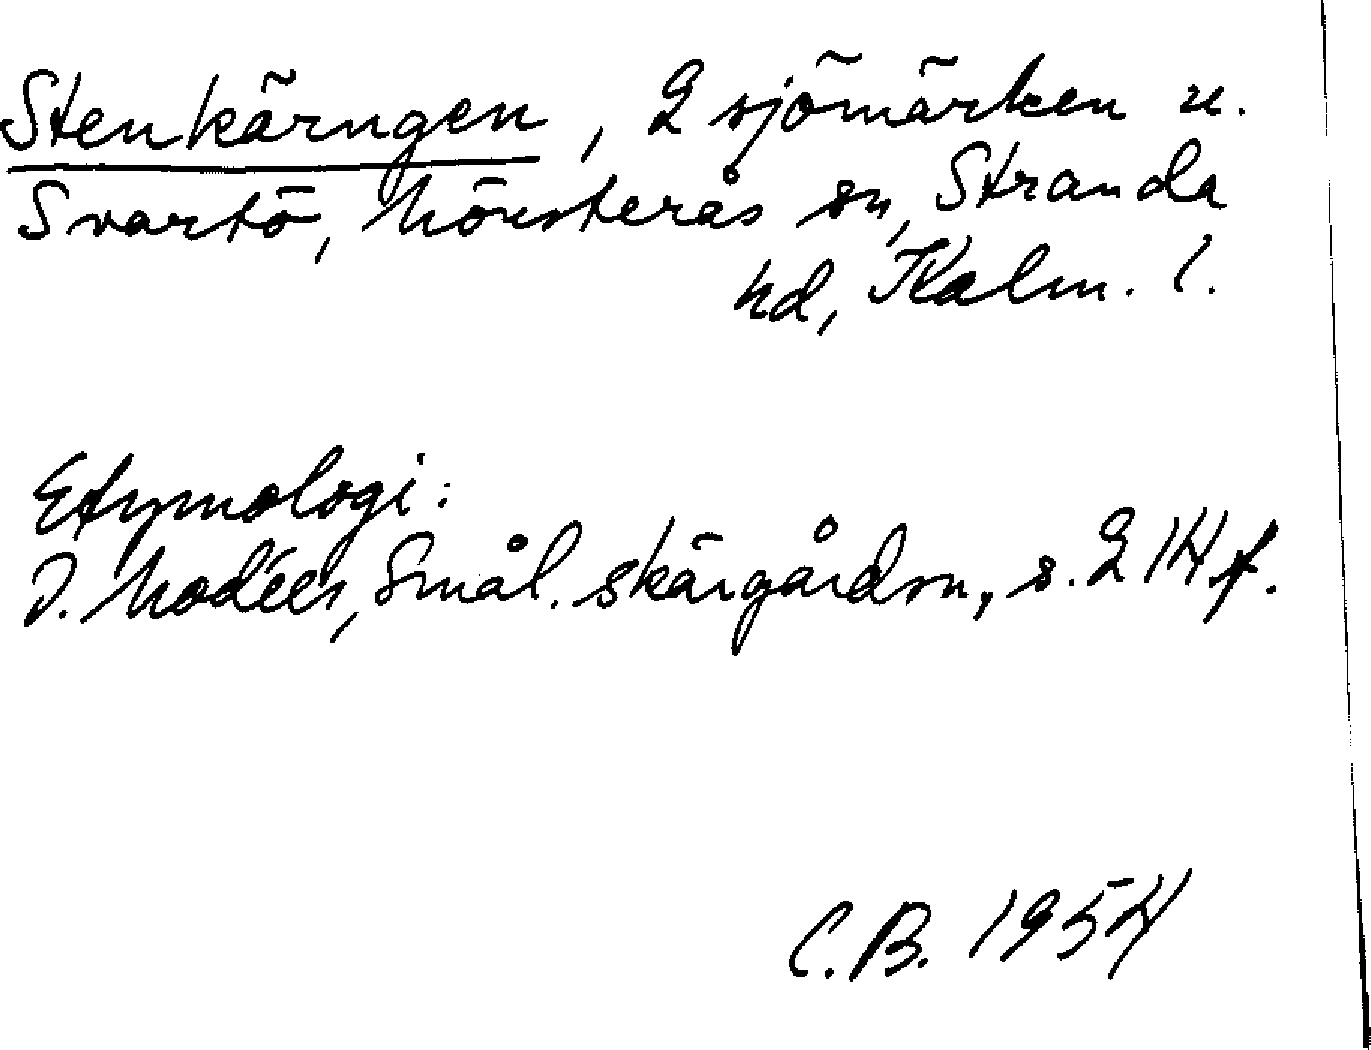 Stenkärngen, 2 sjömärken u.
Svartö, Mönsterås sn, Stranda
hd, Kalm. l.
Etymologi:
I. Modéer, Smål. skärgårdsn, s. 214 f.
C.B. 1954